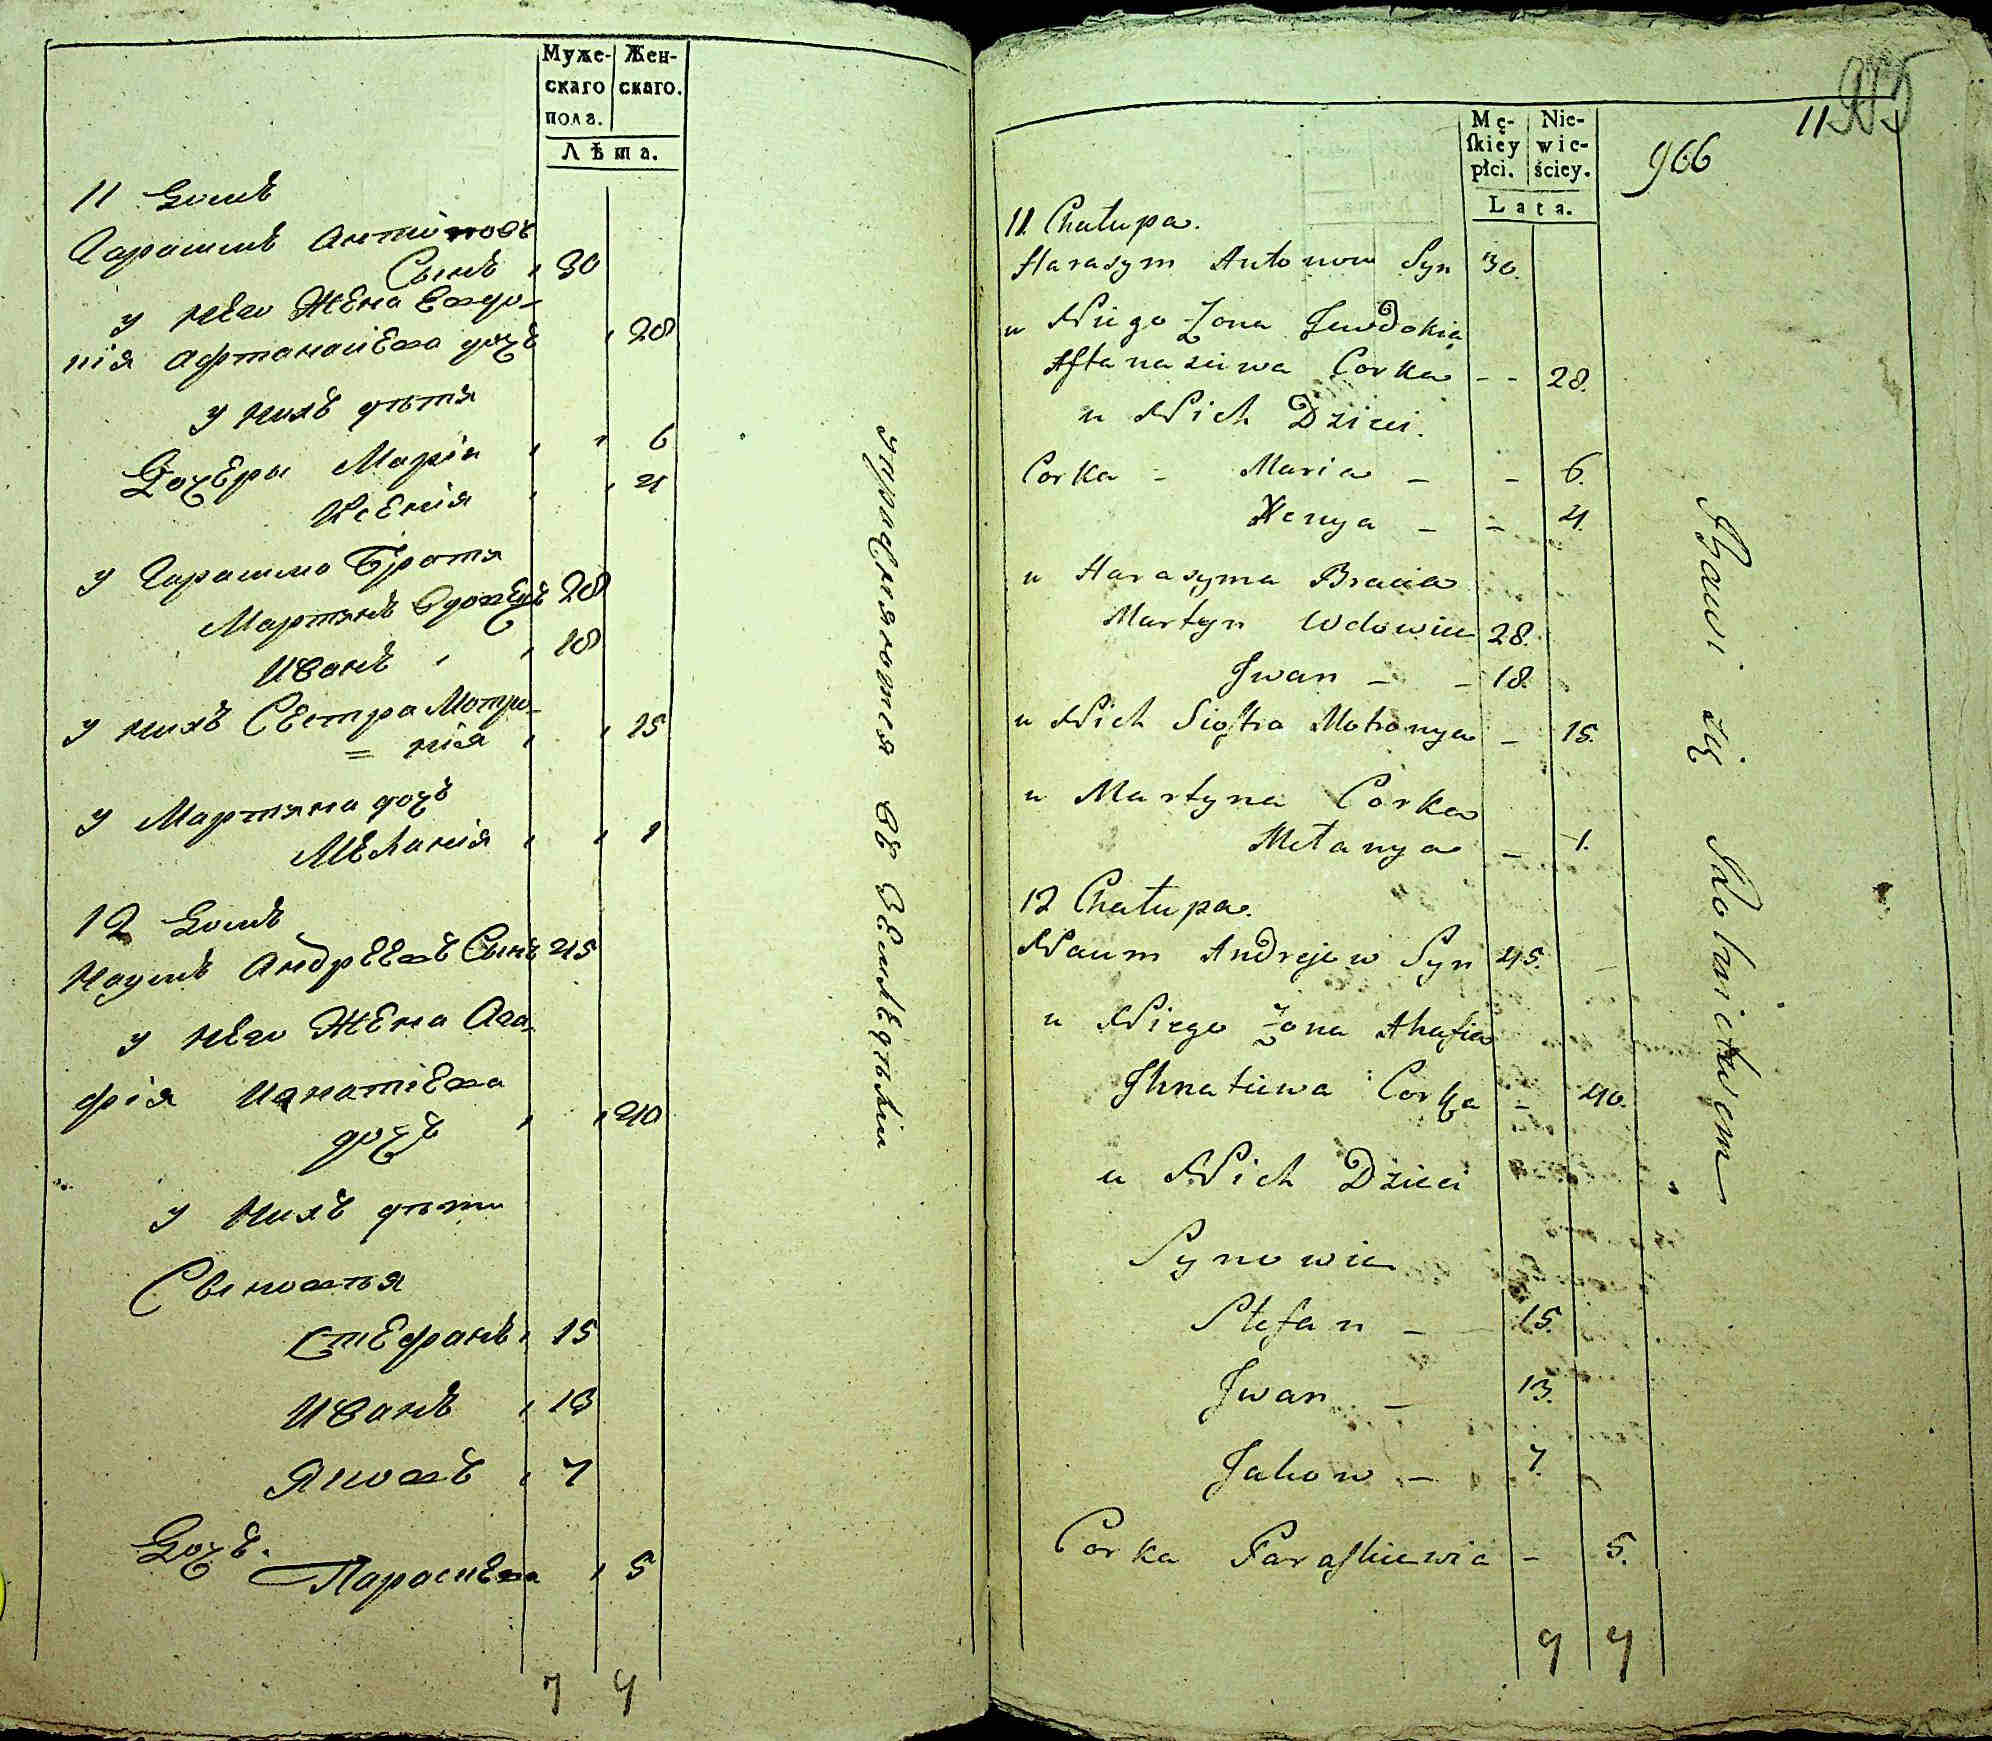 Муже-
скаго
пола.
Жен-
скаго.
Лѣта.
11 Домъ
Гарасимъ Антоновъ
Сынъ 30
у него Жена Евдо-
кія Афтанасіева дочь 28
у нихъ дѣтя
Дочеры Марія 6
Ксенія 4
у Гарасима Братя
Мартынъ Вдовецъ 28
Иванъ 18
у нихъ Сестра Мотро-
= нія 15
у Мартына дочь
Меланія 1
12 Домъ
Наумъ Андреевъ Сынъ 45
у него Жена Ага-
фія Игнатіева
дочь 40
у нихъ дѣти
Сыновья
Стефанъ 15
Иванъ 13
Яковъ 7
Дочь
Параскева 5
7 7
упражняются въ Земледѣліи
Mę-
ſkiey
płci.
Nie-
wie-
ściey.
Lata.
966
11
11. Chałupa.
Harasym Antonow Syn 30.
u Niego Żona Jewdokia
Aftanasiewa Corka - - 28.
u Nich Dzieci.
Corka - Maria - - 6.
Xenya - - 4.
u Harasyma Bracia
Martyn Wdowiec 28.
Jwan - - 18.
u Nich Sioſtra Motronya - 15.
u Martyna Corka
Mełanya - 1.
12 Chałupa.
Naum Andrejew Syn 45.
u Niego Żona Ahafia
Jhnatiewa Corka - 40.
u Nich Dzieci
Synowie
Stefan - 15.
Jwan - 13.
Jakow - 7.
Corka Paraſkiewia - 5.
7 7
Bawi się Rolnictwem